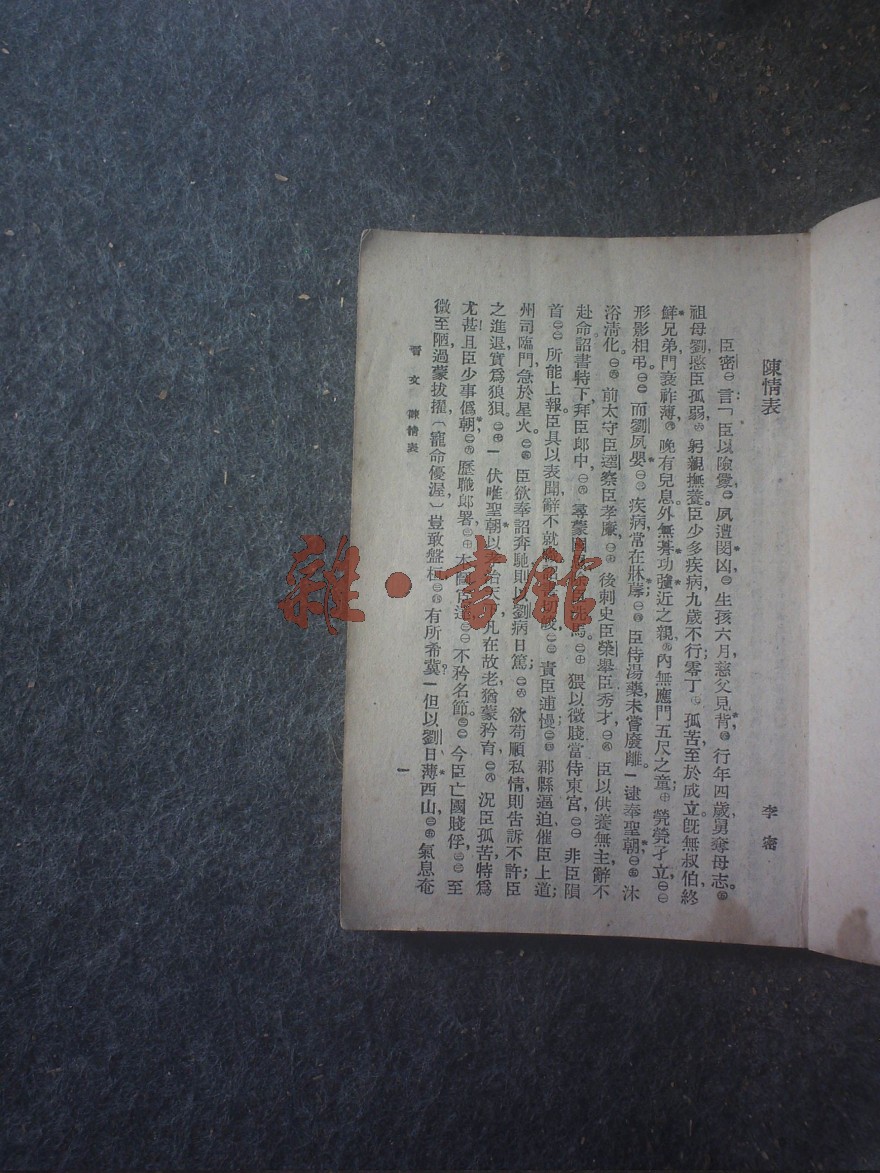 陳情表
李密
臣密㊀言:「臣以險釁,㊁夙遭閔凶,㊂生孩六月,慈父見背,㊃行年四歲,舅奪母志。㊄
祖母劉愍臣孤弱,㊅躬親撫養。臣少多疾病,九歲不行;零丁㊆孤苦,至於成立。既無叔伯,終
鮮兄弟,門衰祚薄,㊇晚有兒息。外無朞功強近之親,㊈內無應門五尺之童;㊉煢煢孑立,㊀㊀
形影相弔。㊀㊁而劉夙嬰㊀㊂疾病,常在牀蓐;㊀㊃臣侍湯藥,未嘗廢離。一逮奉聖朝,㊀㊄沐
浴清化。㊀㊅前太守臣逵察臣孝廉,㊀㊆後刺史臣榮舉臣秀才,㊀㊇臣以供養無主,辭不
赴命。詔書特下,拜臣郎中,㊀㊈尋蒙國恩,臣洗馬。㊁㊉猥以微賤,當侍東宮,㊁㊀非臣隕
首㊁㊁所能上報。臣具以表聞,辭不就峻,㊁㊂責臣逋慢;㊁㊃郡縣逼迫,催臣上道;
州司臨門,急於星火。㊁㊄臣欲奉詔奔馳,則以劉病日篤;㊁㊅欲苟順私情,則告訴不許;臣
之進退,實爲狼狽。㊁㊆一伏唯聖朝以治天,凡在故老,猶蒙矜育,㊁㊇況臣孤苦,特爲
尤甚!且臣少事僞朝,㊁㊈歷職郎署,㊂㊉本圖宦達,㊂㊀不矜名節。㊂㊁今臣亡國賤俘,㊂㊂至
微至陋,過蒙拔擢,(寵命優渥)豈敢盤桓,㊂㊃有所希冀?一但以劉日薄西山,㊂㊄氣息奄
晉文 陳情表
一
雜·書館